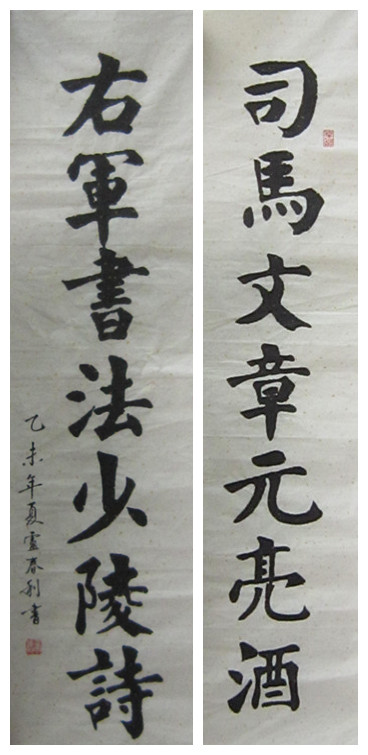 司馬文章元亮酒
右軍書法少陵詩
乙未年夏雷春利書